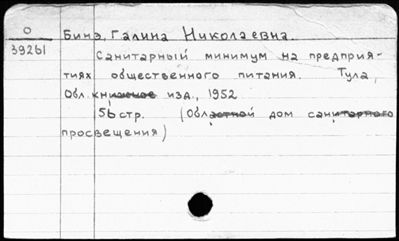 О
39261
Бинэ, Галина Николаевна.
Санитарный минимум на предприя-
тиях общественного питания. Тула,
Обл. книжное изд., 1952
56 стр. (Областной дом санитарного
просвещения)